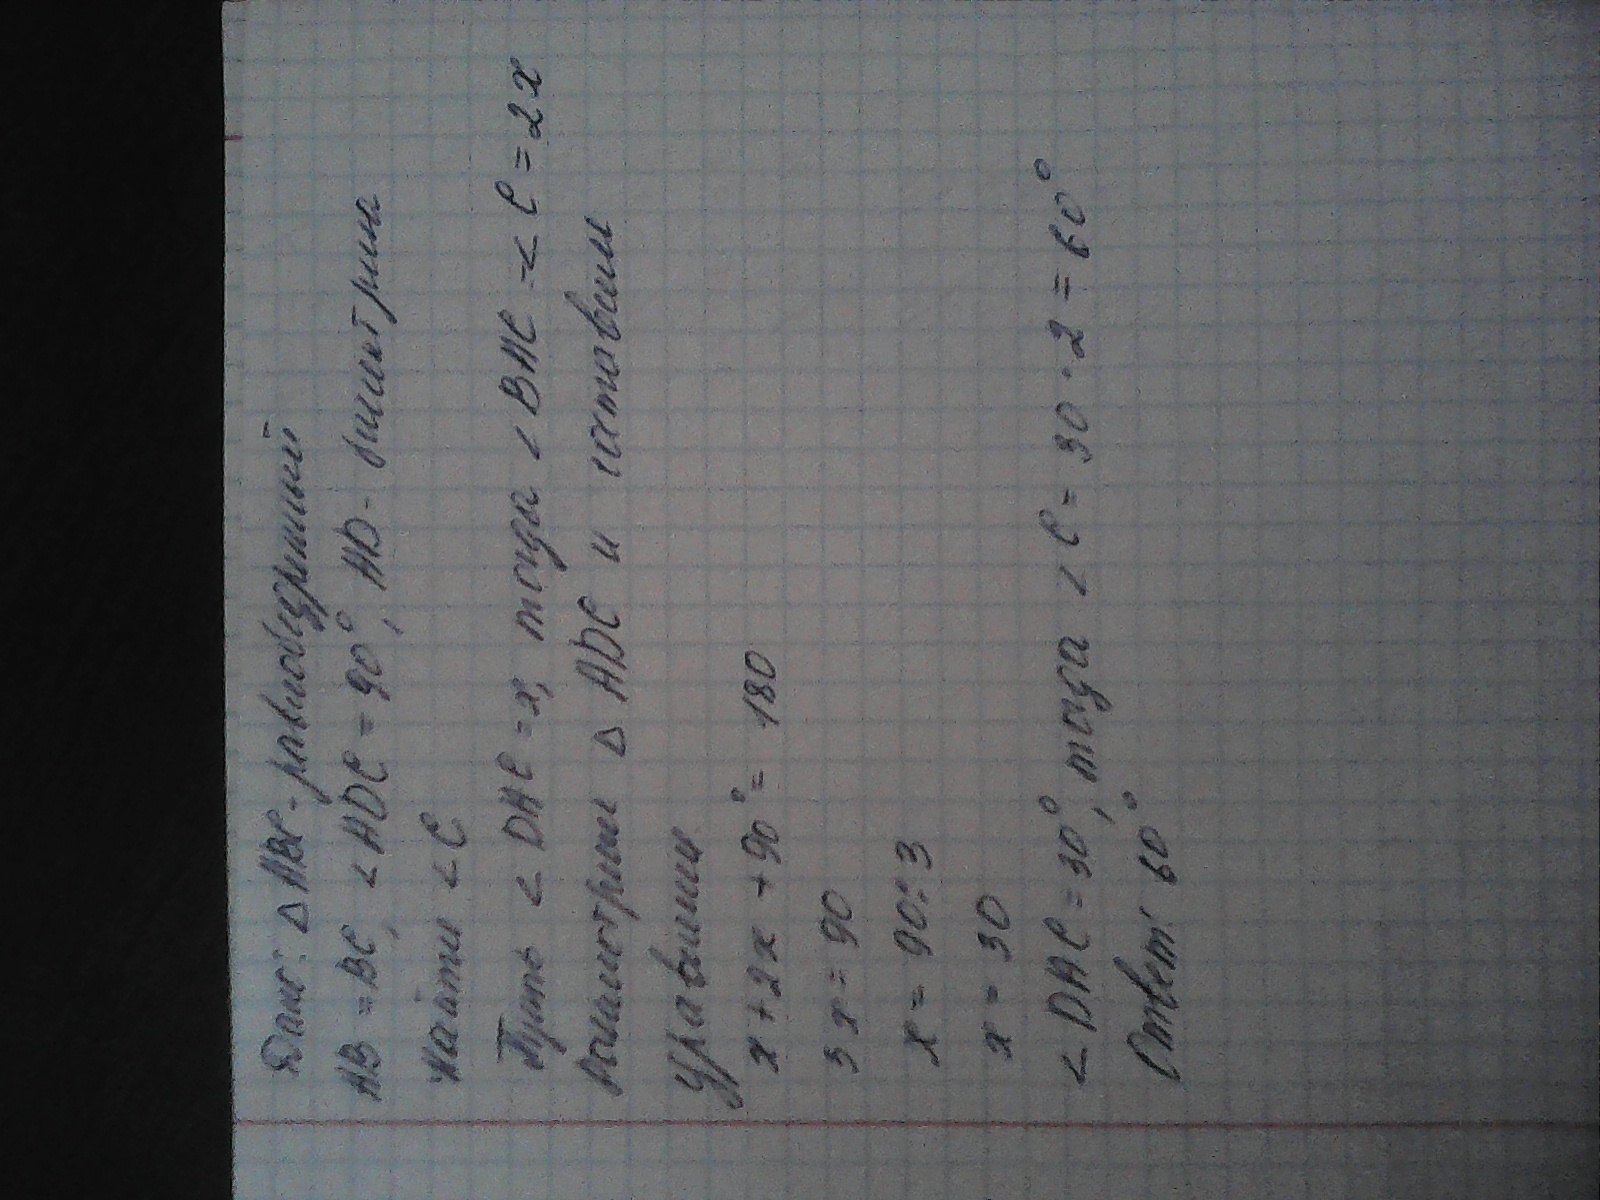 Дано: △ ABC - равнобедренный
AB = BC, <ADC = 90°, AD - биссектриса
Найти <C
Пусть < DAC = x, тогда <BAC = <C = 2x
Рассмотрим △ ADC и составим
уравнение
x + 2x + 90° = 180
3x = 90
x = 90:3
x = 30
< DAC = 30°, тогда <C = 30·2 = 60°
Ответ: 60°